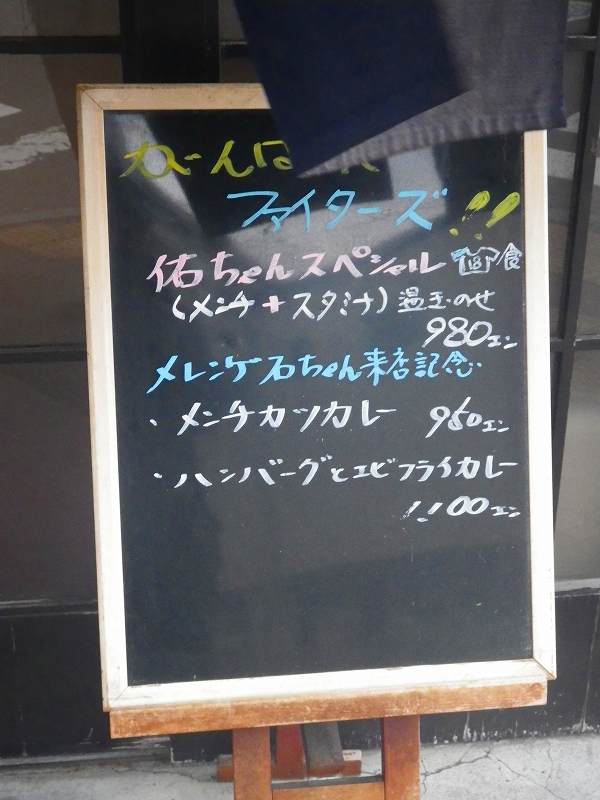 がんば
ファイターズ!!
佑ちゃんスペシャル 18 食
(メンチ+スタミナ)温玉のせ
980エン
メレンゲ石ちゃん来店記念
・メンチカツカレー 950エン
・ハンバーグとエビフライカレー
1,100エン